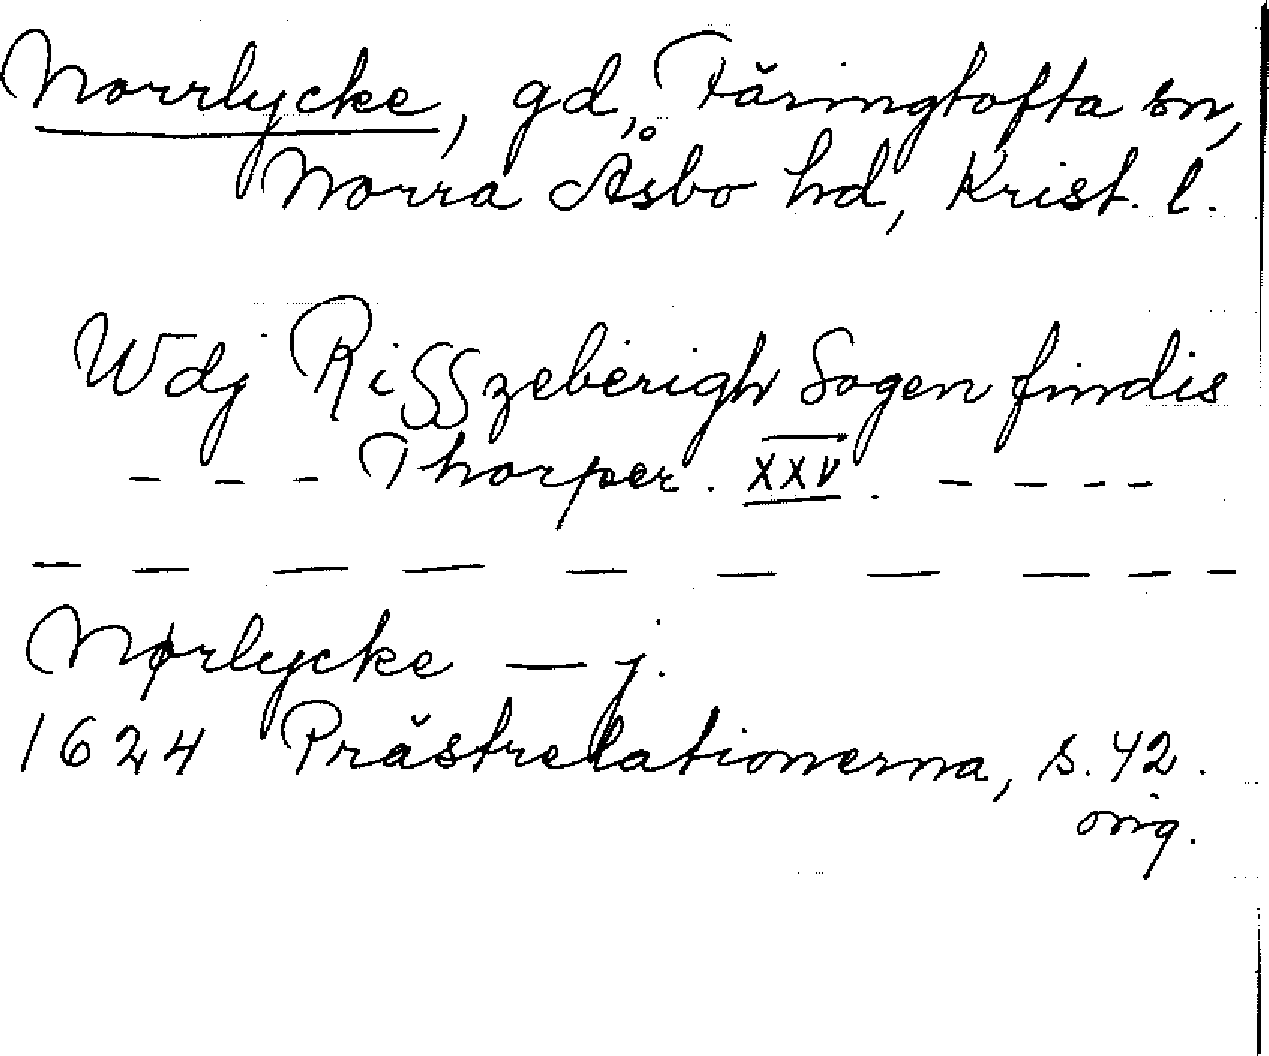 Norrlycke, gd, Färingtofta sn,
Norra Åsbo hd, Krist. l.
Wdj Risszeberigh Sogen findis
- - - Thorper. XXV. - - - -
— — — — — — — — — —
Nørlycke — j.
1624 Prästrelationerna, s. 42.
orig.